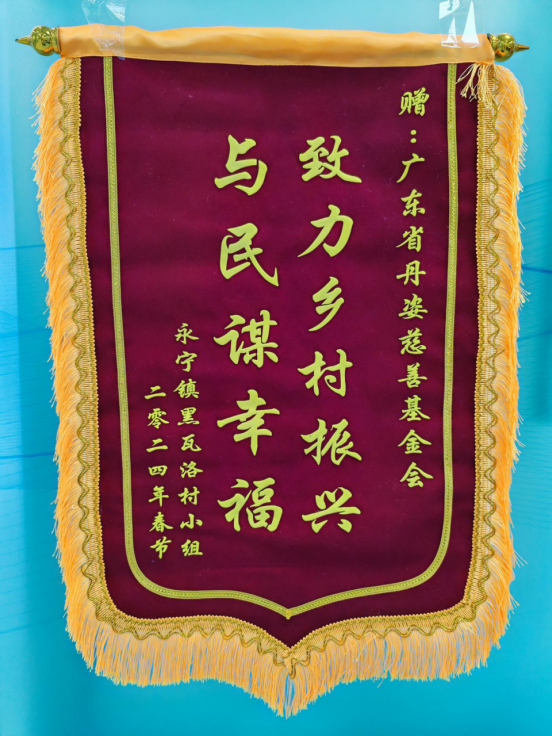 赠：广东省丹姿慈善基金会
致力乡村振兴
与民谋幸福
永宁镇黑瓦洛村小组
二零二四年春节